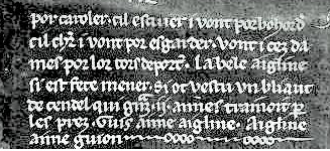 por caroler. cil escuier i vont por bohorder
cil chlr i vont por esgarder. vont i cez da
mes por lor cors deporter. la bele aigline
si est fete mener. si ot vestu un bliaut
de cendel qui granz .ii. aunes trainoit par
les prez. Guis aime aigline. Aigline
aime guion